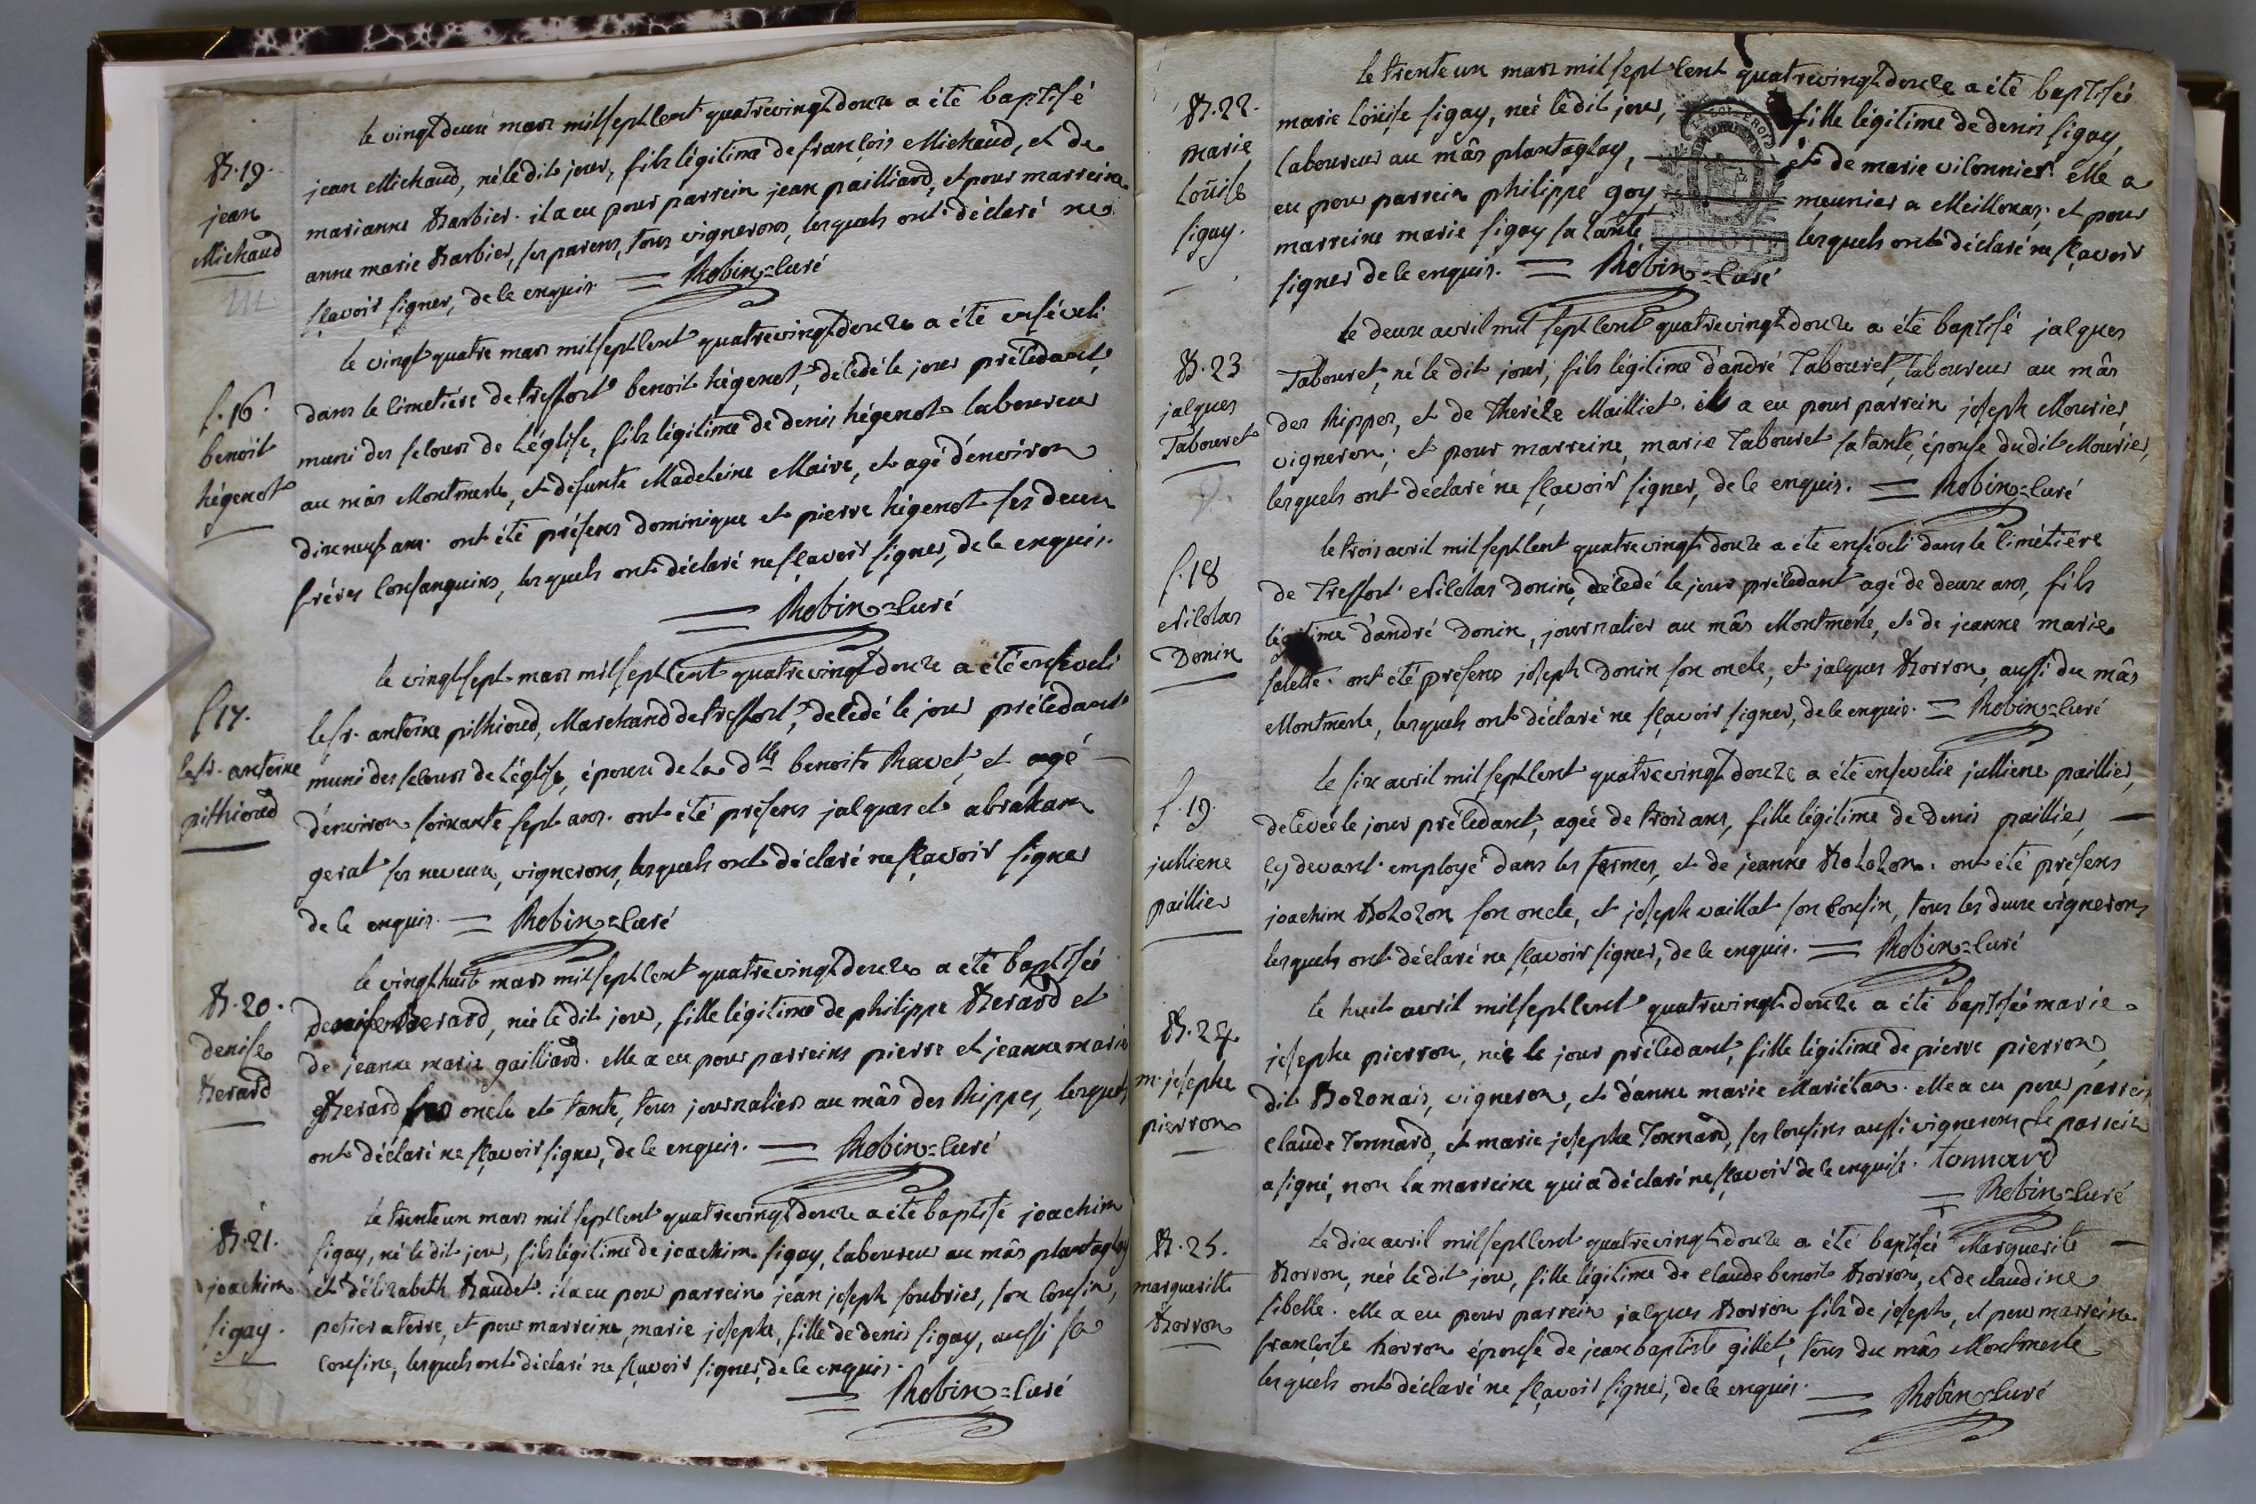 B. 19.
jean
Michaud
le vingt deux mars mil sept cent quatre vingt douze a été baptisé
jean Michaud, né le dit jour, fils légitime de françois Michaud, et de
marianne Barbier. il a eu pour parrein jean pailliard, et pour marreine
anne marie Barbier, ses parens, tous vignerons, lesquels ont déclaré ne
sçavoir signer, de ce enquis. = Robin=curé
S. 16.
benoit
hégenot
le vingt quatre mars mil sept cent quatre vingt douze a été enséveli
dans le cimetière de treffort benoit hégenot, décédé le jour précédant,
muni des secours de l'église, fils légitime de denis hégenot laboureur
au mâs Montmerle, et défunte Madeleine Maire, et agé d'environ
dixneuf ans. ont été présens dominique et pierre hégenot ses deux
fréres consanguins, lesquels ont déclaré ne sçavoir signer, de ce enquis.
= Robin=curé
S. 17.
le sr. antoine
pithioud
le vingt sept mars mil sept cent quatre vingt douze a été enséveli
le sr. antoine pithioud, Marchand de treffort, décedé le jour précédant
muni des secours de l'église, époux de la dlle benoite Ravet, et agé
d'environ soixante sept ans. ont été présens jacques et abraham
gerat ses neveux, vignerons, lesquels ont déclaré ne sçavoir signer
de ce enquis. = Robin=curé
B. 20.
denise
Berard
le vingt huit mars mil sept cent quatre vingt douze a été baptisée
denise Berard, née le dit jour, fille légitime de philippe Berard et
de jeanne marie gailliard. elle a eu pour parreins pierre et jeanne marie
Berard ses oncle et tante, tous journaliers au mâs des Rippes, lesquels
ont déclaré ne sçavoir signer, de ce enquis. = Robin=curé
B. 21.
joachim
figay.
le trente un mars mil sept cent quatre vingt douze a été baptisé joachim
figay, né le dit jour, fils légitime de joachim figay, laboureur au mâs plantaglay
et d'élizabeth Baudet. il a eu pour parrein jean joseph soubrier, son cousin,
potier a terre, et pour marreine, marie josephe, fille de denis figay, aussi sa
cousine, lesquels ont déclaré ne sçavoir signer, de ce enquis.
= Robin=curé
B. 22.
marie
Loüise
figay.
le trente un mars mil sept cent quatre vingt douze a été baptisée
marie Loüise figay, née le dit jour, fille légitime de denis figay,
laboureur au mâs plantaglay, et de marie vilonnier. elle a
eu pour parrein philippe goy, meunier a Meillonas, et pour
marreine marie figay sa tante, lesquels ont déclaré ne sçavoir
signer de ce enquis. = Robin=curé
B. 23
jacques
Tabouret
le deux avril mil sept cent quatre vingt douze a été baptisé jacques
Tabouret, né le dit jour, fils légitime d'andré Tabouret, laboureur au mâs
des Rippes, et de Therèze Mailliet. il a eu pour parrein joseph Mourier
vigneron; et pour marreine, marie Tabouret sa tante, épouse dudit Mourier,
lesquels ont déclaré ne sçavoir signer, de ce enquis. = Robin=curé
S. 18
Nicolas
Donin
le trois avril mil sept cent quatre vingt douze a été enséveli dans le cimétière
de Treffort Nicolas Donin, décedé le jour précedant agé de deux ans, fils
légitime d'andré Donin, journalier au mâs Montmerle, et de jeanne marie
solette. ont été présens joseph Donin son oncle, et jacques Borron, aussi du mâs
Montmerle, lesquels ont déclaré ne sçavoir signer, de ce enquis. = Robin=curé
S. 19.
julliene
paillier
le six avril mil sept cent quatre vingt douze a été ensevelie julliene paillier,
décédée le jour précedant, agée de trois ans, fille légitime de denis paillier,
cy devant employé dans les fermes, et de jeanne Bozozon. ont été présens
joachim Bozozon son oncle, et joseph vaillat son cousin, tous les deux vignerons
lesquels ont déclaré ne sçavoir signer, de ce enquis. = Robin=curé
B. 24.
m. josephe
pierron
le huit avril mil sept cent quatre vingt douze a été baptisée marie
josephe pierron, née le jour précédant, fille légitime de pierre pierron,
dit Bozonais, vigneron, et d'anne marie Mariétan. elle a eu pour parrein
claude Tonnard, et marie josephe Tonnard, ses cousins aussi vignerons, le parrein
a signé, non la marreine qui a déclaré ne sçavoir de ce enquise. tonnard
= Robin=curé
B. 25.
margueritte
Borron
le dix avril mil sept cent quatre vingt douze a été baptisée Marguerite
Borron, née le dit jour, fille légitime de claude benoit Borron, et de claudine
sibelle. elle a eu pour parrein jacques Borron fils de joseph, et pour marreine
françoise Borron épouse de jean baptiste gillet, tous du mâs Montmerle
lesquels ont déclaré ne sçavoir signer, de ce enquis.
= Robin=curé